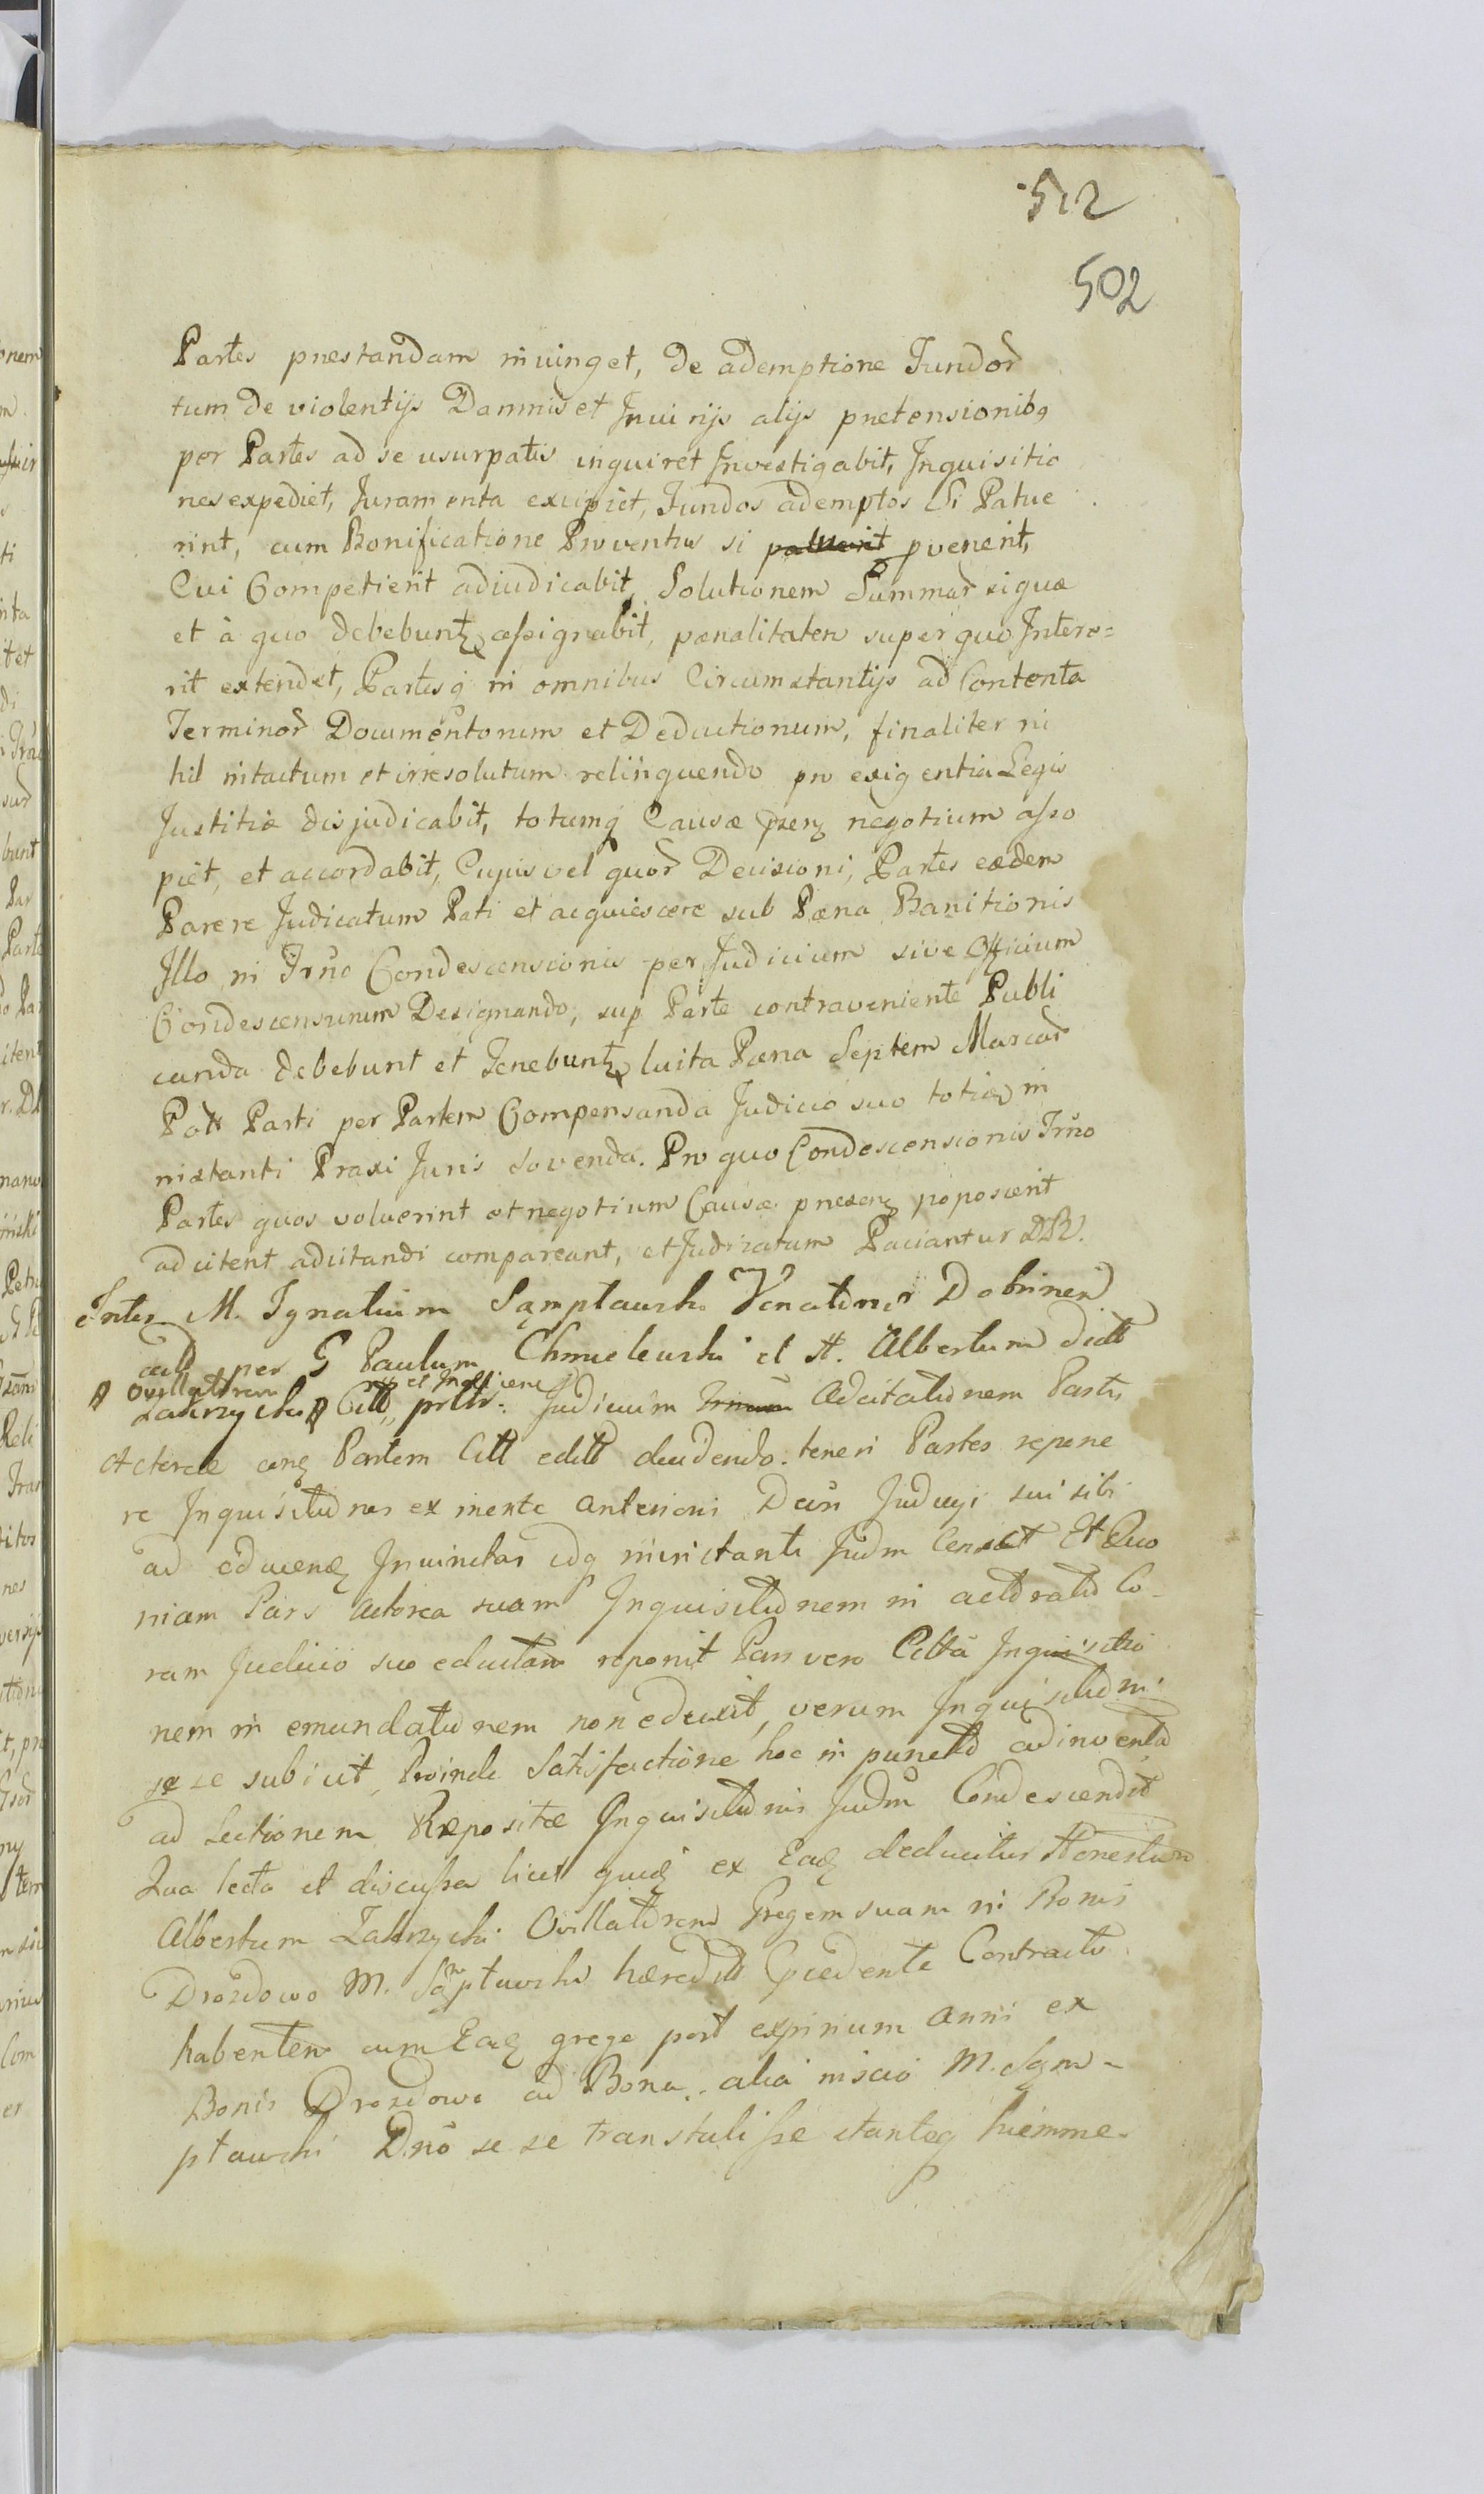 512
502
Partes præstandam iniunget, de ademptione Fundor
tum de violentijs Damnis et Iniurijs alijs prætensionibq
per Partes ad se usurpatis inquiret Investigabit, Inquisitio
nes expediet, Juramenta excipiet, Fundos ademptos Si Patue
rint, cum Bonificatione Proventus si patuerit pvenerit,
Cui Competierit adiudicabit, Solutionem Summar si quæ
et à quo debebuntq aſsignabit, pænalitatem super quo Intere=
rit extendet, Partesq in omnibus Circumstantijs ad Contenta
Terminor Documentorum et Deductionum, finaliter ni
hil intactum et irresolutum relinquendo pro exigentia Legis
Justitiæ disjudicabit, totumq Causæ pzenq negotium aſso
piet, et accordabit, Cujus vel quor Decisioni, Partes eædem
Parere Judicatum Pati et acquiescere sub Pæna Banitionis
Illo in Trno Condescensionis per Judicium sive Officium
Condescensurum Designando, sup Parte contraveniente Publi
canda debebunt et Tenebuntq luita Pæna Septem Marcar
Patt Parti per Partem Compensanda Judicio suo toties in
nistanti Praxi Juris Sovenda. Pro quo Condescensionis Trno
Partes quos voluerint et negotium Causæ præsenq poposcerit
adcitent adcitandi compareant, et Judicatum Paciantur DR.
Inter M. Ignatium Sąmptawski Venatorem Dobrinen
act per G Paulum Chmielewski et H. Albertum dictt
Ovillatorem
Zakrzycki Citt prtto. Judicium Trnum Adcitationem Partis
Actoreæ cong Partem Citt edito deudendo. teneri Partes repone
re Inquisitiones ex mente anteriori Decri Judicyi sui sibi
ad educenq Iniunctas idq ninistanti Judm Censet Et Quo
niam Pars actorea suam Inquisitionem in actorato Co-
ram Judicio suo eductam reponit Pars vero Citta Inquisitio
nem in emundationem non eduxit, verum Inquisitioni
se se subicit, Proinde Satisfactione hoc in puncto adinventa
ad Lectionem Repositæ Inquisitionis Judm Condescendit
Qua lecta et discuſsa licet quidq ex Eadq deducitur Honestum
Albertum Zakrzycki Ovillatorem Gregem suam in Bonis
Drozdowo M. Sąmptawski hæredit Ppcedente Contractu
habentem cum Eadq grege post expirium anni ex
Bonis Drozdowo ad Bona alia niscio M. Sąm-
ptawski Dno se se transtuliſse stanteq hiemme-